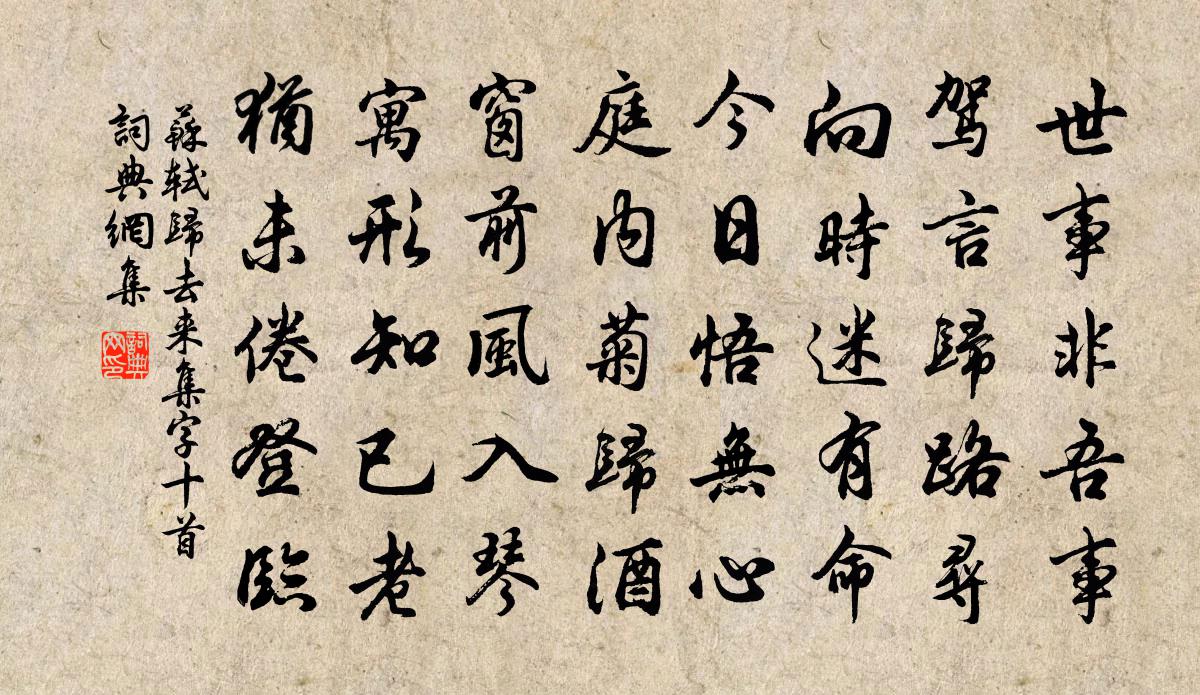 世事非吾事
驾言歸路尋
向時迷有命
今日悟無心
庭内菊歸酒
窗前風入琴
寓形知已老
猶未倦登臨
蘇轼歸去来集字十首
詞典網集
詞典
网印